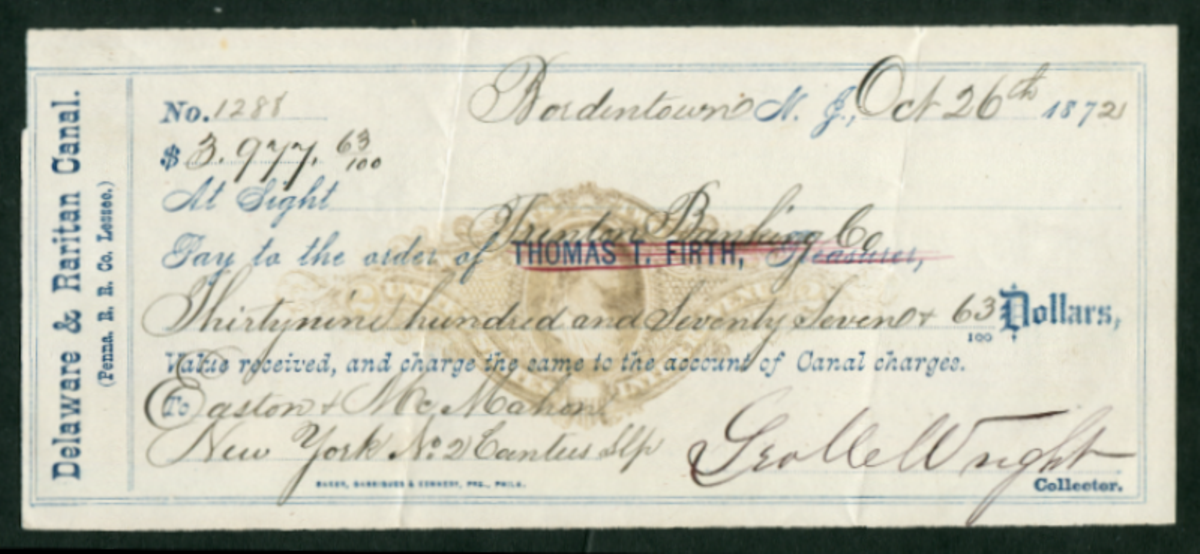 Delaware & Raritan Canal.
(Penna. R. R. Co. Lessee.)
Bordentown N. J., Oct 26th 1872
No. 1288
$ 3.977. 63/100
At Sight
Trenton Banking Co
Pay to the order of THOMAS T. FIRTH, Treasurer,
Thirtynine hundred and Seventy Seven + 63/100 Dollars,
Value received, and charge the same to the account of Canal charges.
To Easton + Mc Mahon
New York No. 2 Slip
Geo Wright
Collector.